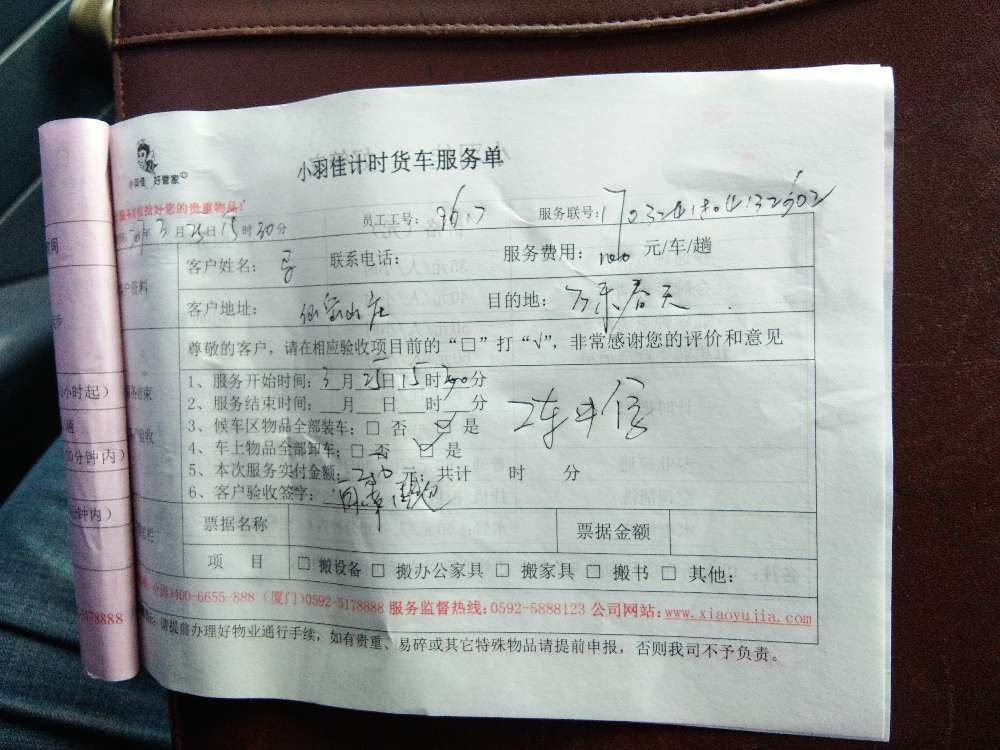 小羽佳 好管家
小羽佳计时货车服务单
拾好您的贵重物品!
3月25日15时30分 员工工号: 服务联号:
客户姓名: 联系电话: 服务费用: 元/车/趟
客户资料
客户地址: 仙岳山庄 目的地: 春天
尊敬的客户,请在相应验收项目前的“□”打“√”,非常感谢您的评价和意见
1、服务开始时间:3月25日15时30分
2、服务结束时间:__月__日__时__分
3、候车区物品全部装车:□ 否 □ 是
4、车上物品全部卸车:□ 否 □ 是
5、本次服务实付金额: 元; 共计 时 分
6、客户验收签字:
票据名称 票据金额
项 目 □ 搬设备 □ 搬办公家具 □ 搬家具 □ 搬书 □ 其他:
400-6655-888 (厦门)0592-5178888 服务监督热线:0592-5888123 公司网站:www.xiaoyujia.com
请提前办理好物业通行手续,如有贵重、易碎或其它特殊物品请提前申报,否则我司不予负责。
小时起)
0分钟内)
分钟内)
5178888